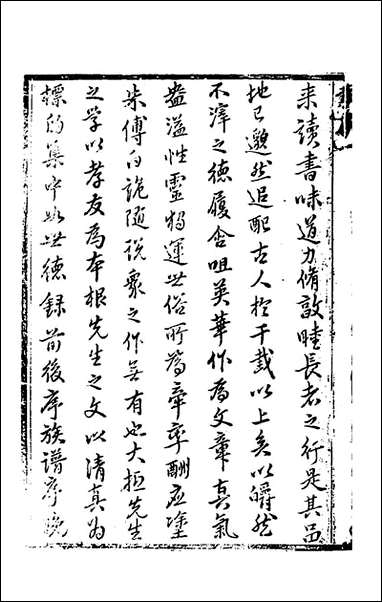 来读书味道力脩敦睦長者之行是其品
地已邈然追配古人於千载以上矣以皭然
不滓之德履含咀英華作為文章真氣
盎溢性靈獨運世俗所為牽率酬应塗
朱傅白詭随説衆之作無有也大抵先生
之学以孝友為本根先生之文以清真為
標的集中如世德録前後序族譜序晚